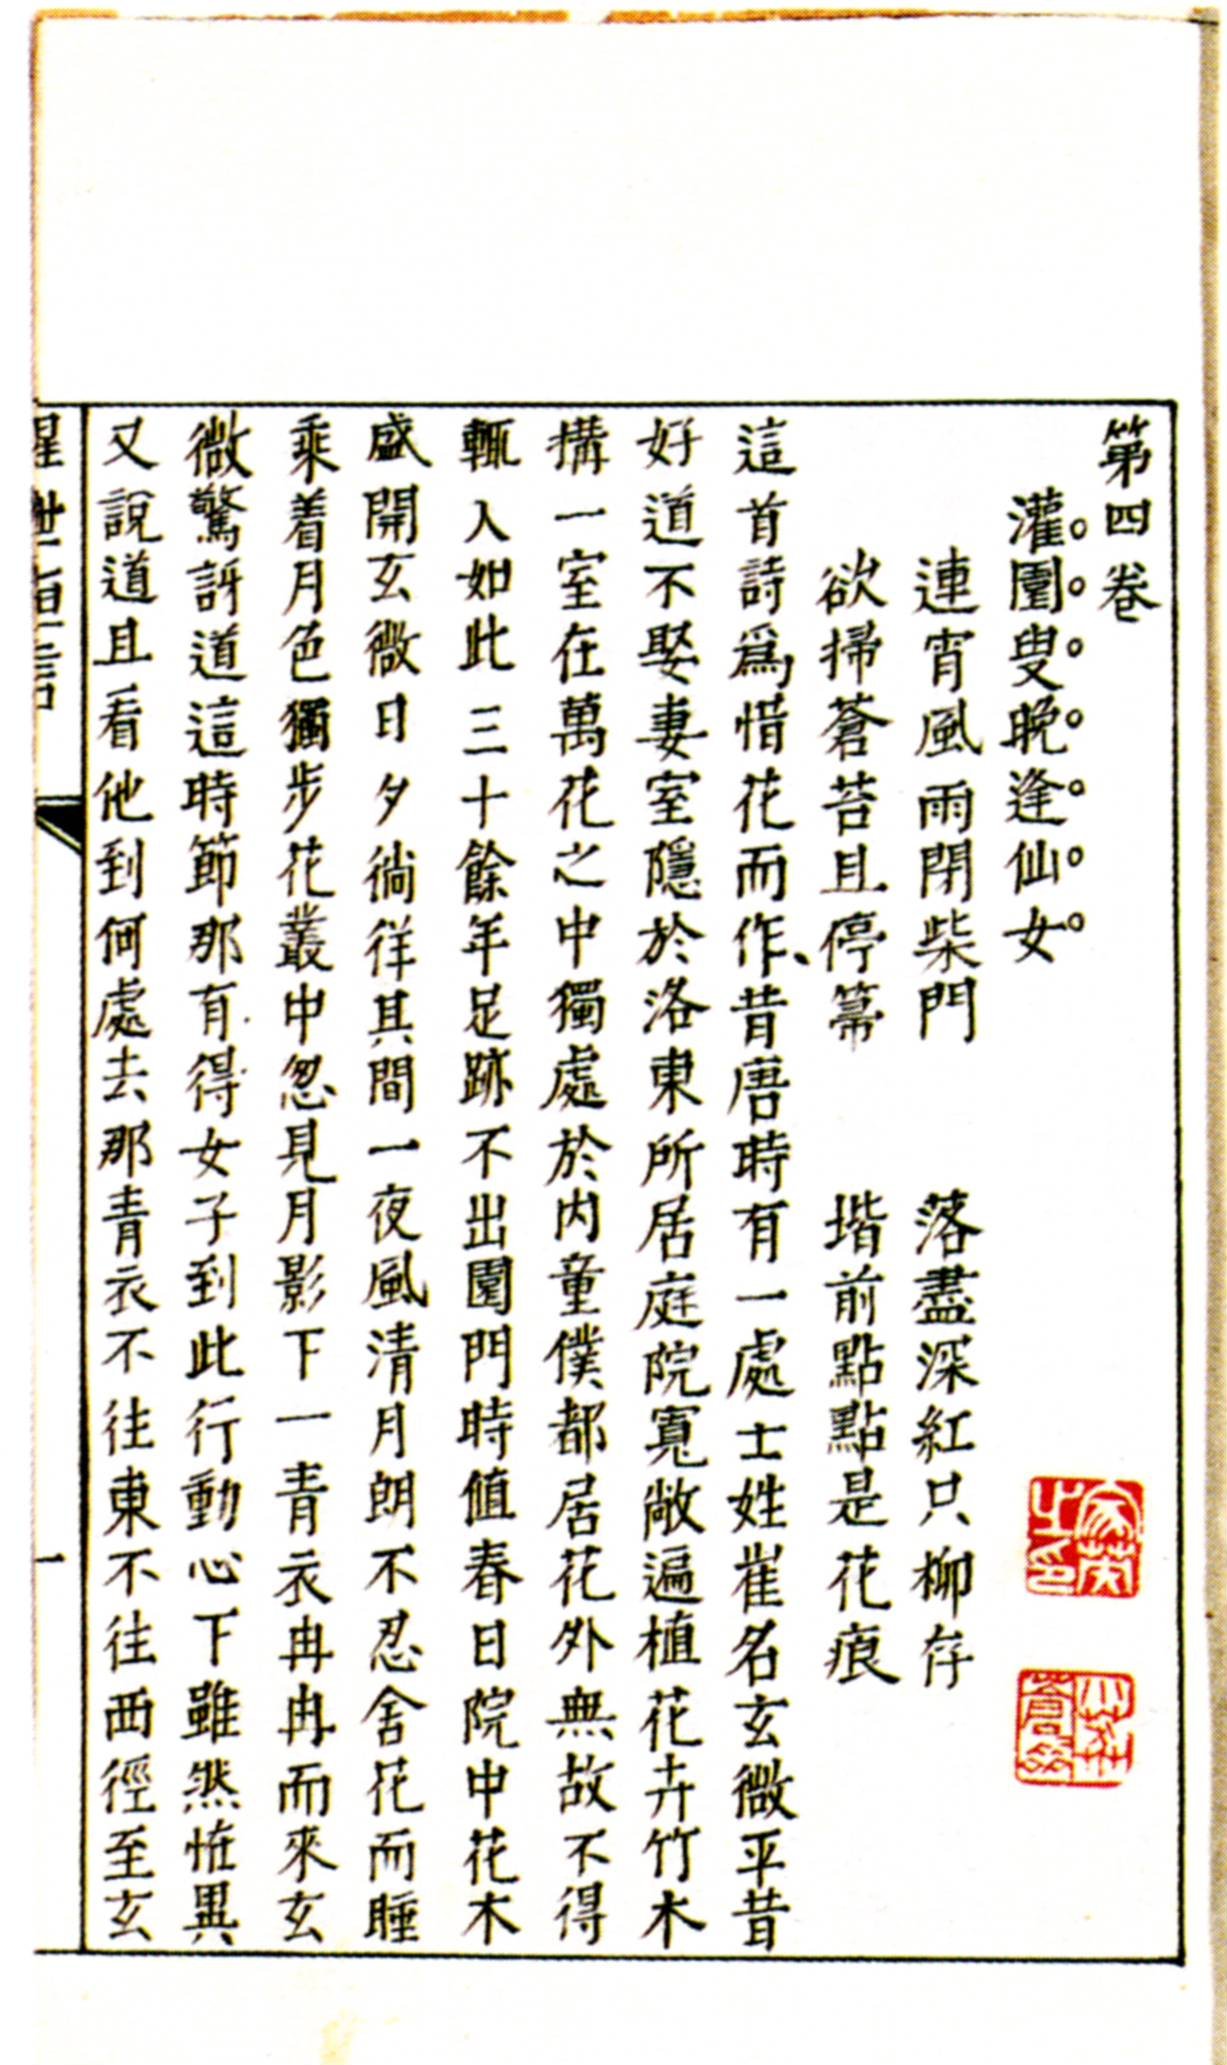 第四卷
灌園叟晚逢仙女
連宵風雨閉柴門 落盡深紅只柳存
欲掃蒼苔且停箒 堦前點點是花痕
這首詩爲惜花而作、昔唐時有一處士姓崔名玄微平昔
好道不娶妻室隱於洛東所居庭院寬敞遍植花卉竹木
搆一室在萬花之中獨處於內童僕都居花外無故不得
輒入如此三十餘年足跡不出園門時值春日院中花木
盛開玄微日夕徜徉其間一夜風清月朗不忍舍花而睡
乘着月色獨步花叢中忽見月影下一青衣冉冉而來玄
微驚訝道這時節那有得女子到此行動心下雖然恠異
又說道且看他到何處去那青衣不往東不往西徑至玄
醒世恒言
一